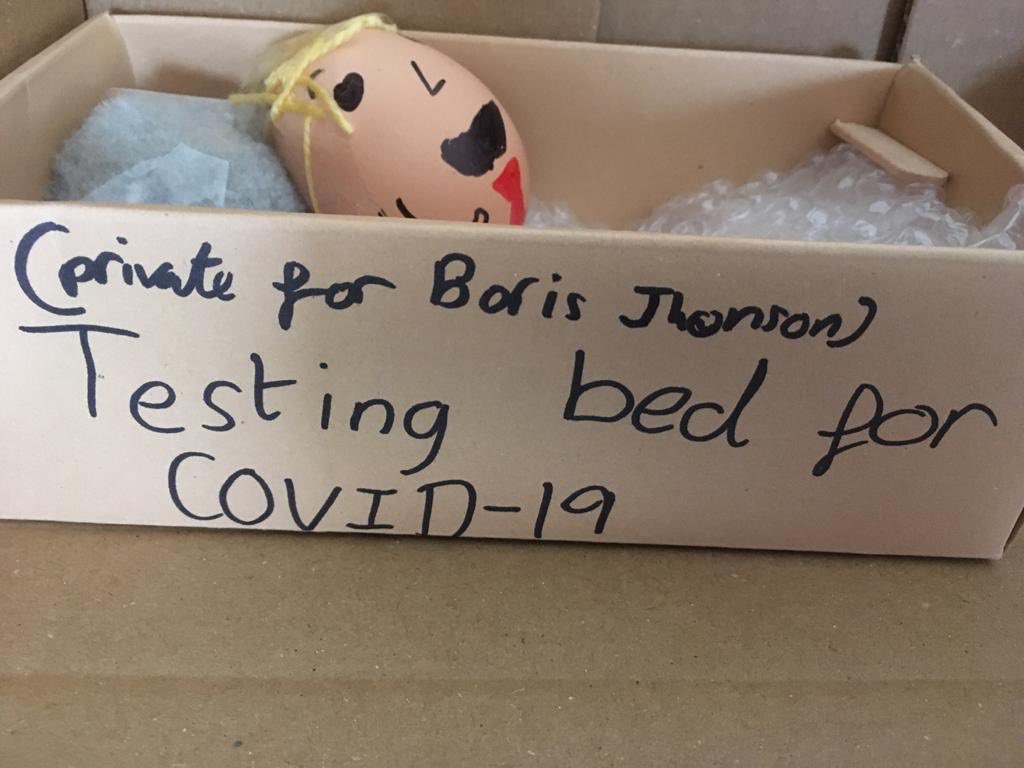 (private for Boris Jhonson)
Testing bed for
COVID-19